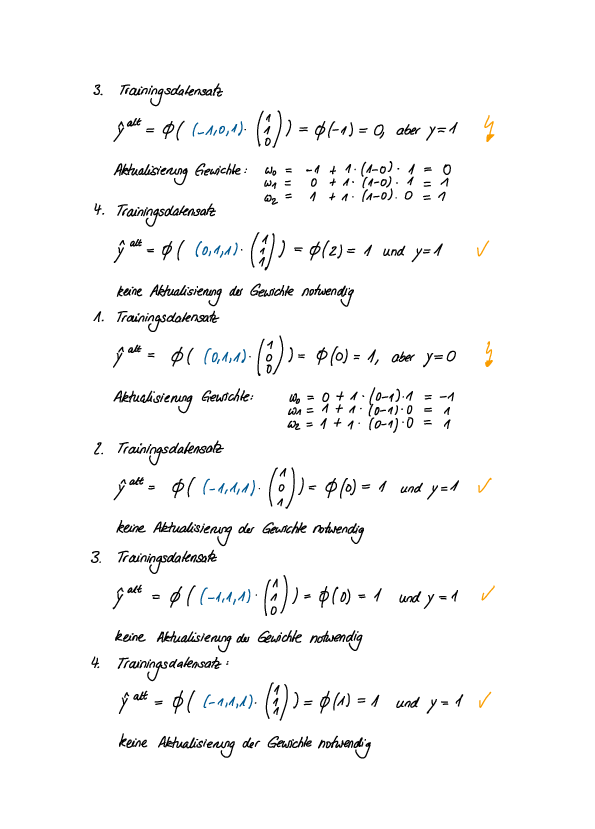 3. Trainingsdatensatz
ŷ^alt = ϕ( (-1,0,1) · (1 1 0) ) = ϕ(-1) = 0, aber y=1 ↯
Aktualisierung Gewichte: ω₀ = -1 + 1·(1-0)·1 = 0
ω₁ = 0 + 1·(1-0)·1 = 1
ω₂ = 1 + 1·(1-0)·0 = 1
4. Trainingsdatensatz
ŷ^alt = ϕ( (0,1,1) · (1 1 1) ) = ϕ(2) = 1 und y=1 ✓
keine Aktualisierung der Gewichte notwendig
1. Trainingsdatensatz
ŷ^alt = ϕ( (0,1,1) · (1 0 0) ) = ϕ(0) = 1, aber y=0 ↯
Aktualisierung Gewichte: ω₀ = 0 + 1·(0-1)·1 = -1
ω₁ = 1 + 1·(0-1)·0 = 1
ω₂ = 1 + 1·(0-1)·0 = 1
2. Trainingsdatensatz
ŷ^alt = ϕ( (-1,1,1) · (1 0 1) ) = ϕ(0) = 1 und y=1 ✓
keine Aktualisierung der Gewichte notwendig
3. Trainingsdatensatz
ŷ^alt = ϕ( (-1,1,1) · (1 1 0) ) = ϕ(0) = 1 und y=1 ✓
keine Aktualisierung der Gewichte notwendig
4. Trainingsdatensatz:
ŷ^alt = ϕ( (-1,1,1) · (1 1 1) ) = ϕ(1) = 1 und y=1 ✓
keine Aktualisierung der Gewichte notwendig